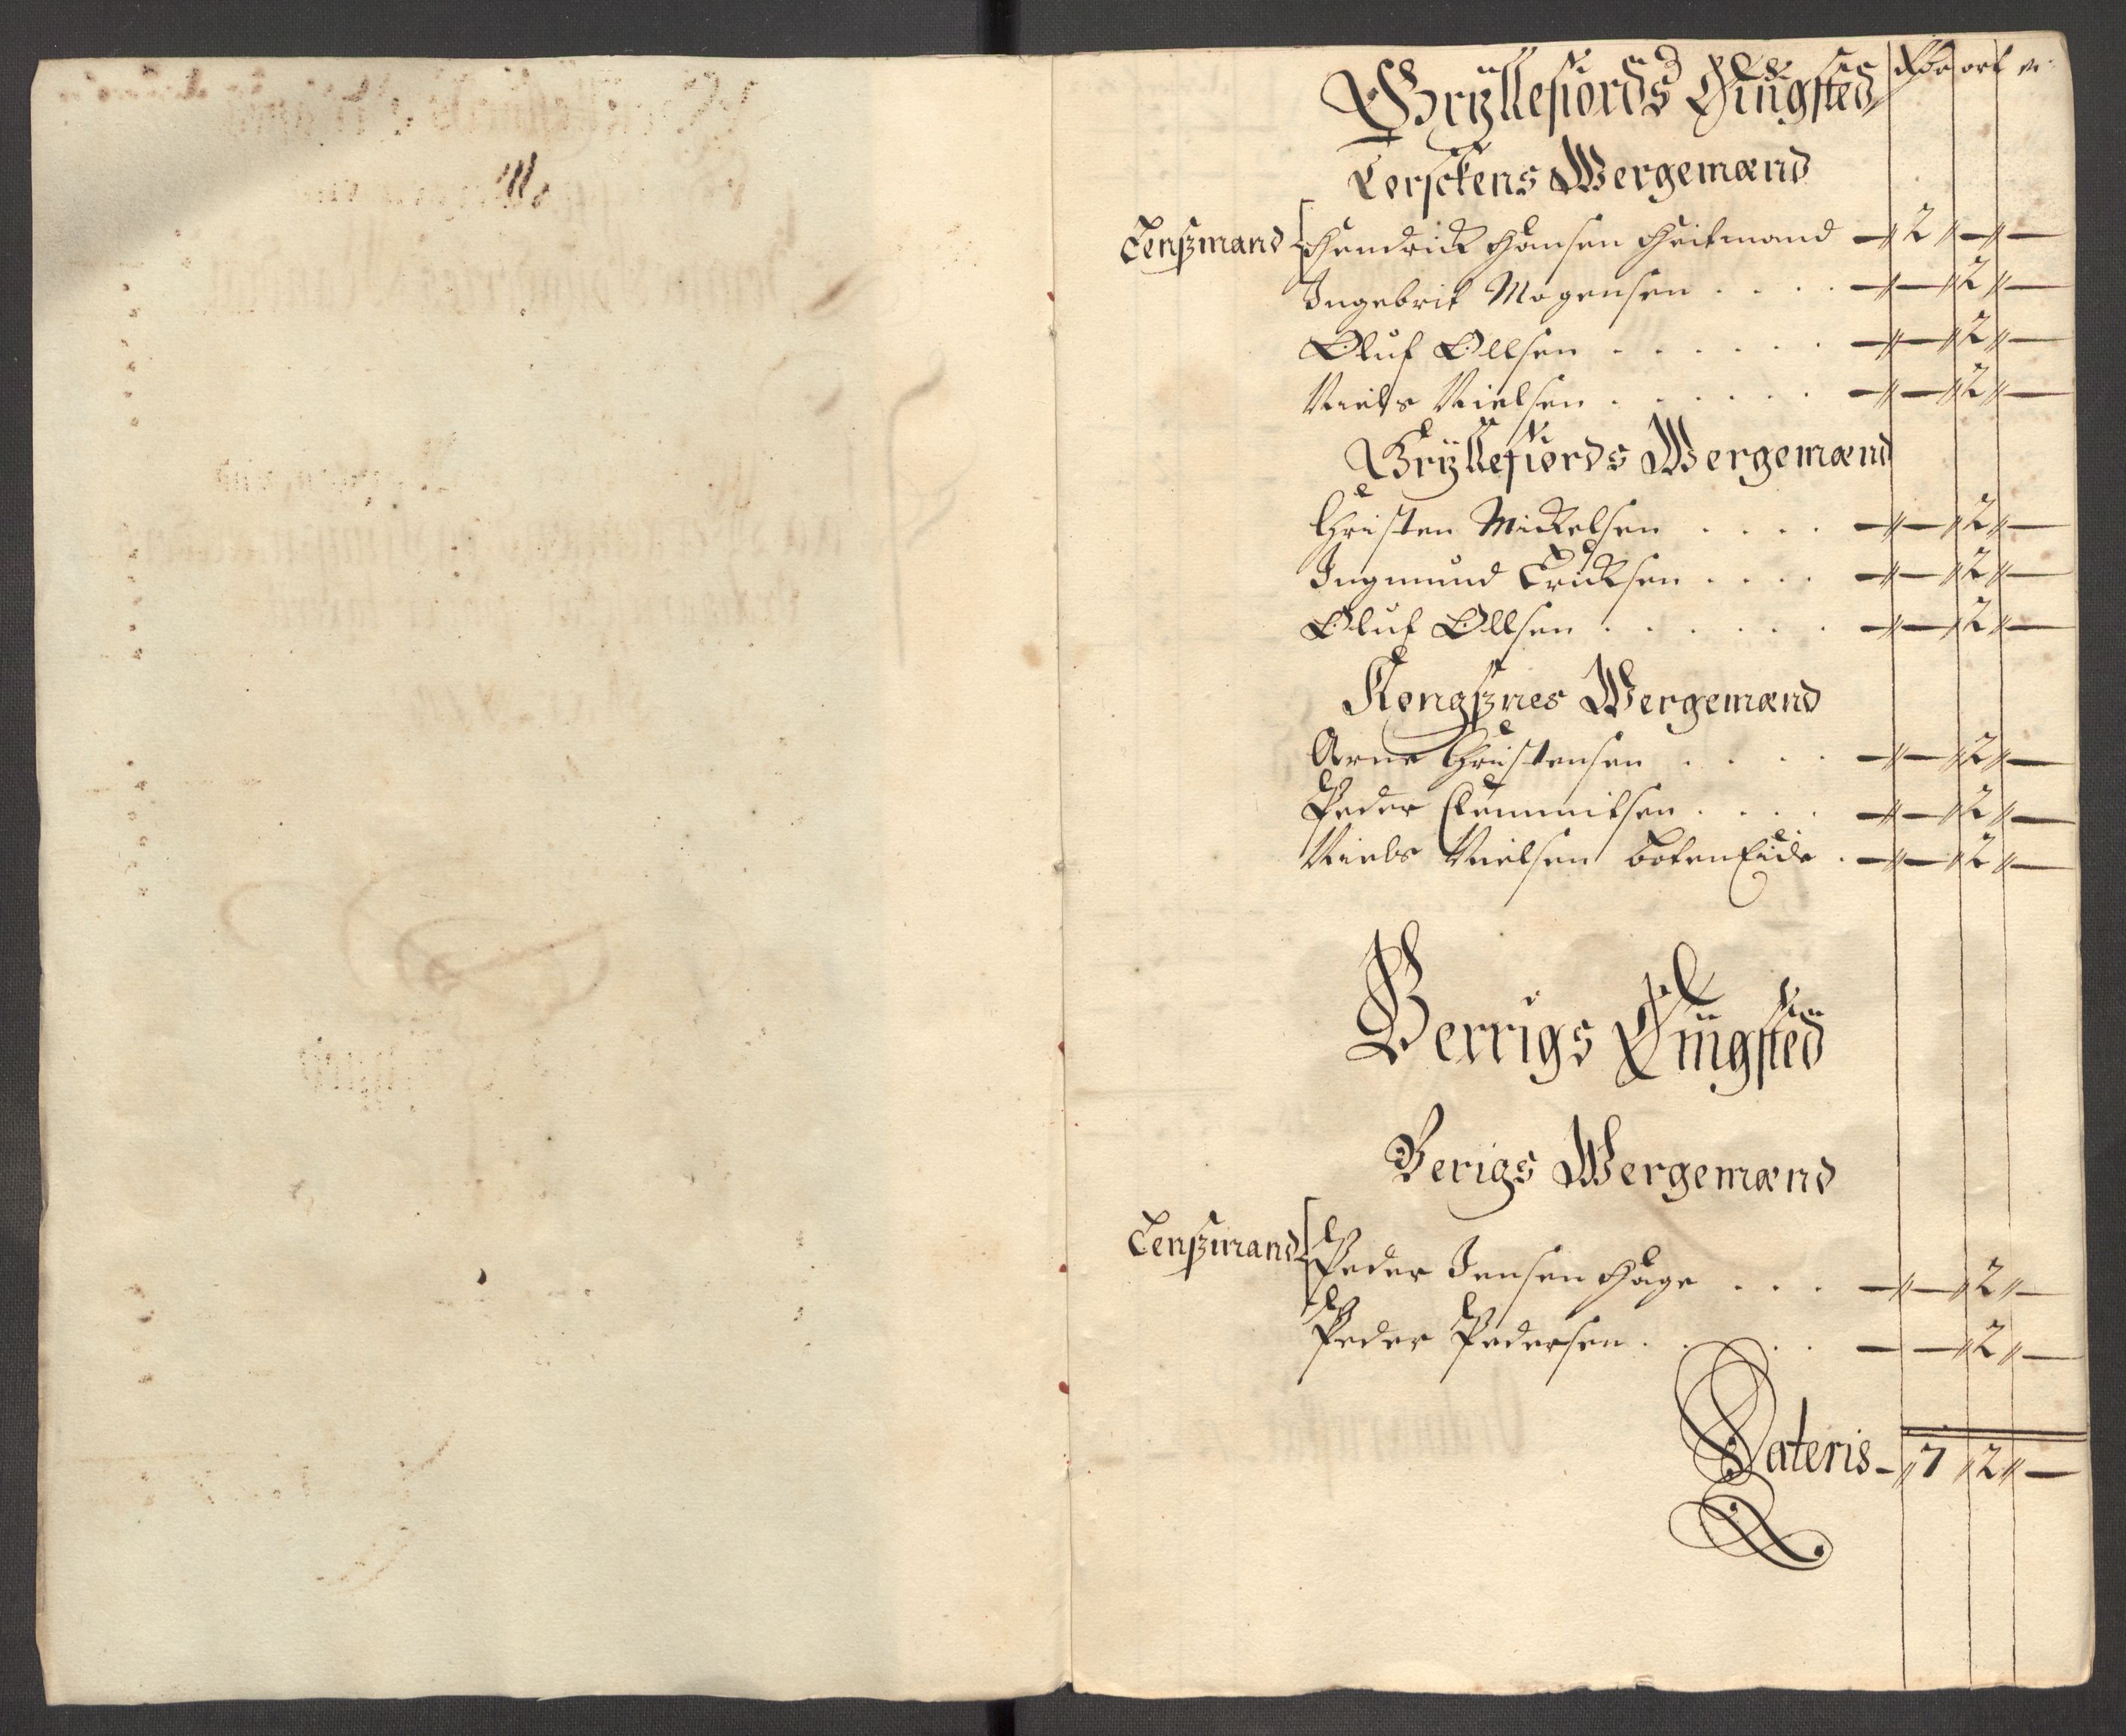 Gryllefiords Tingsted Rdr ort s:
Lerschens Wergemænd
Lenszmand Hendrick Hansen Heitmand — 2 — —
Ingebrit Mogensen . . . . — — 2 —
Oluf Ollsen . . . . . — — 2 —
Niels Nielsen . . . . . . — — 2 —
Gryllefiords Wergemænd
Christen Mickelsen . . . . — — 2 —
Ingmund Ericksen . . . . — — 2 —
Oluf Ollsen . . . . . . — — 2 —
Kongsznes Wergemænd
Arne Christensen . . . . — — 2 —
Peder Clemmitsen . . . . — — 2 —
Niels Nielsen BotenEide . — — 2 —
Berrigs Tingsted
Berigs Wergemænd
Lenszmand Peder Jensen Hage . . . — — 2 —
Peder Pedersen . . . . — — 2 —
Lateris - 7 2 —